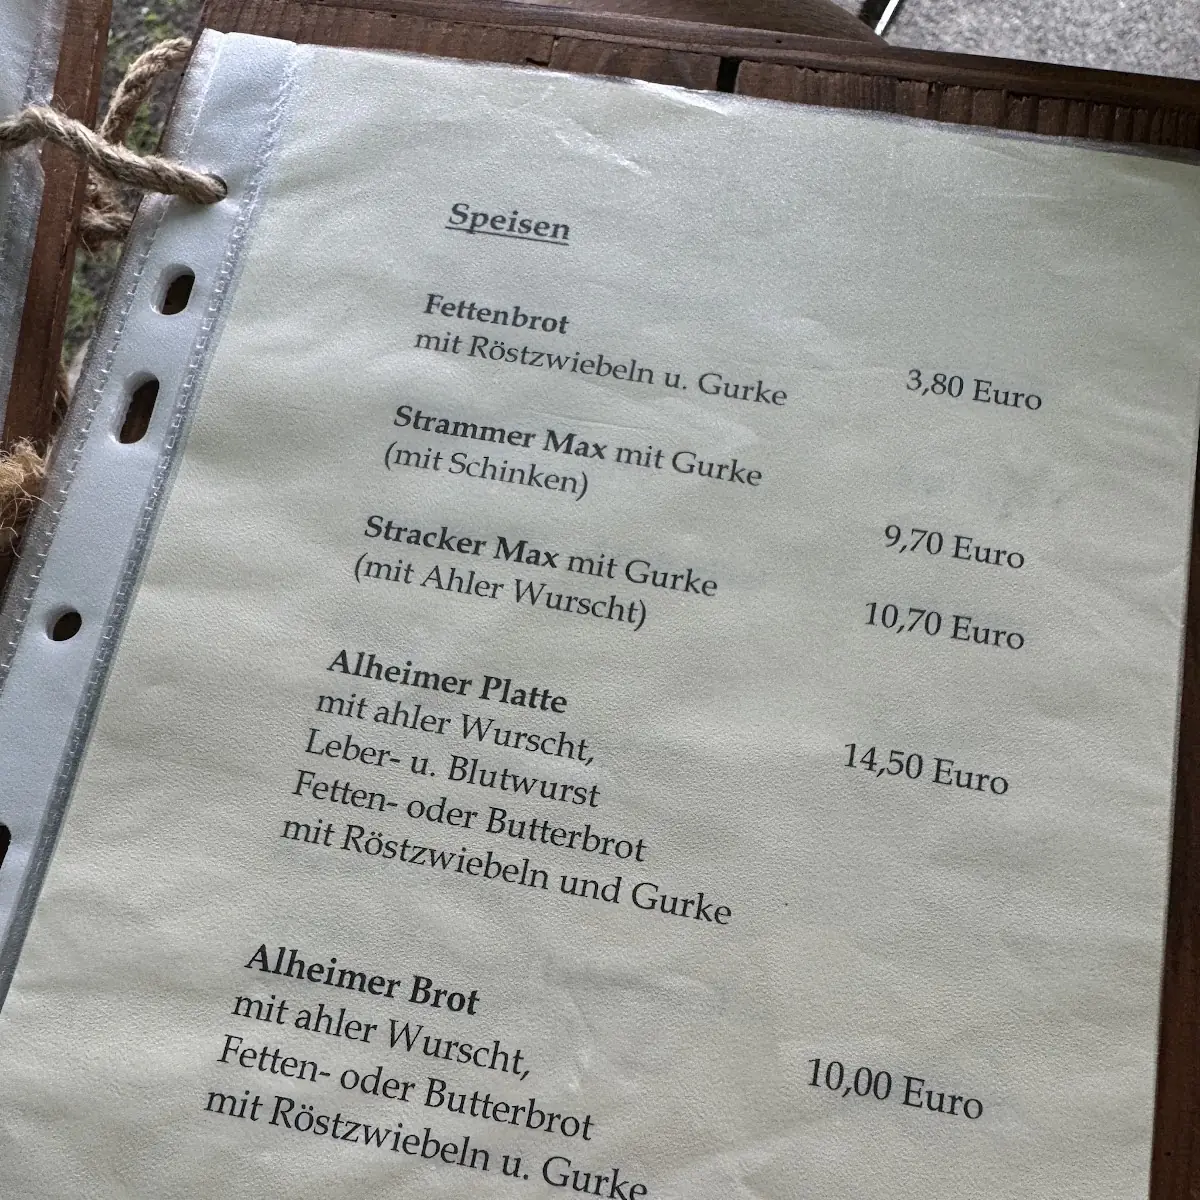 Speisen
Fettenbrot
mit Röstzwiebeln u. Gurke 3,80 Euro
Strammer Max mit Gurke
(mit Schinken) 9,70 Euro
Stracker Max mit Gurke
(mit Ahler Wurscht) 10,70 Euro
Alheimer Platte
mit ahler Wurscht, 14,50 Euro
Leber- u. Blutwurst
Fetten- oder Butterbrot
mit Röstzwiebeln und Gurke
Alheimer Brot
mit ahler Wurscht, 10,00 Euro
Fetten- oder Butterbrot
mit Röstzwiebeln u. Gurke